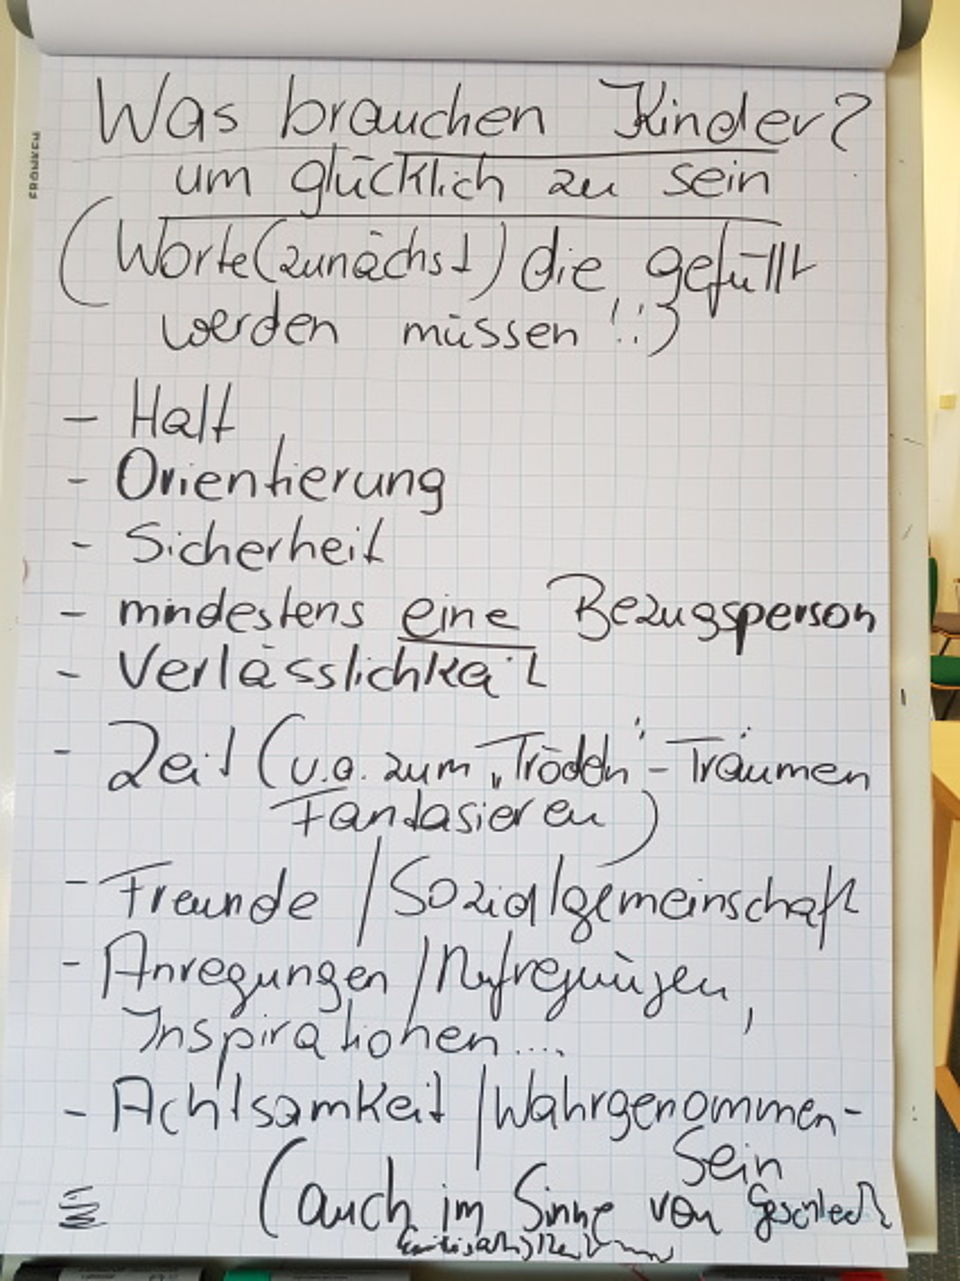 FRANKEN
Was brauchen Kinder?
um glücklich zu sein
(Worte (zunächst) die gefüllt
werden müssen !!)
- Halt
- Orientierung
- Sicherheit
- mindestens eine Bezugsperson
- Verlässlichkeit
- Zeit (u.a. zum „Trödeln" - Träumen
Fantasieren)
- Freunde / Sozialgemeinschaft
- Anregungen / Aufregungen,
Inspirationen....
- Achtsamkeit / Wahrgenommen-
Sein
(auch im Sinne von